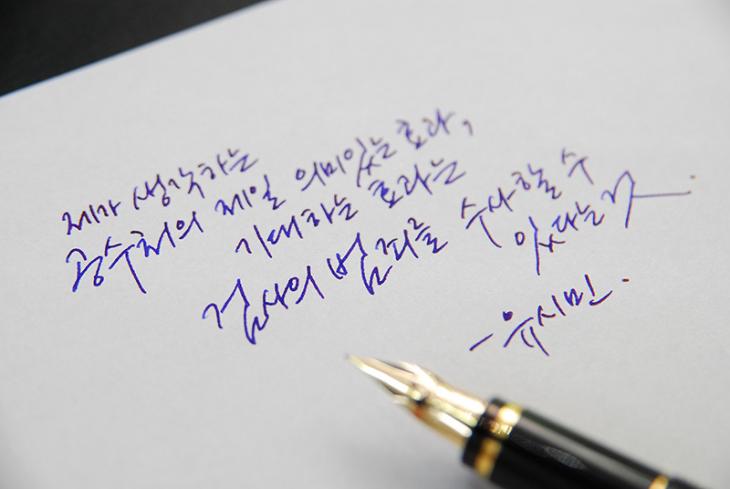 제가 생각하는
공수처의 제일 의미있는 효과,
기대하는 효과는
검사의 범죄를 수사할 수
있다는 것.
- 유시민.